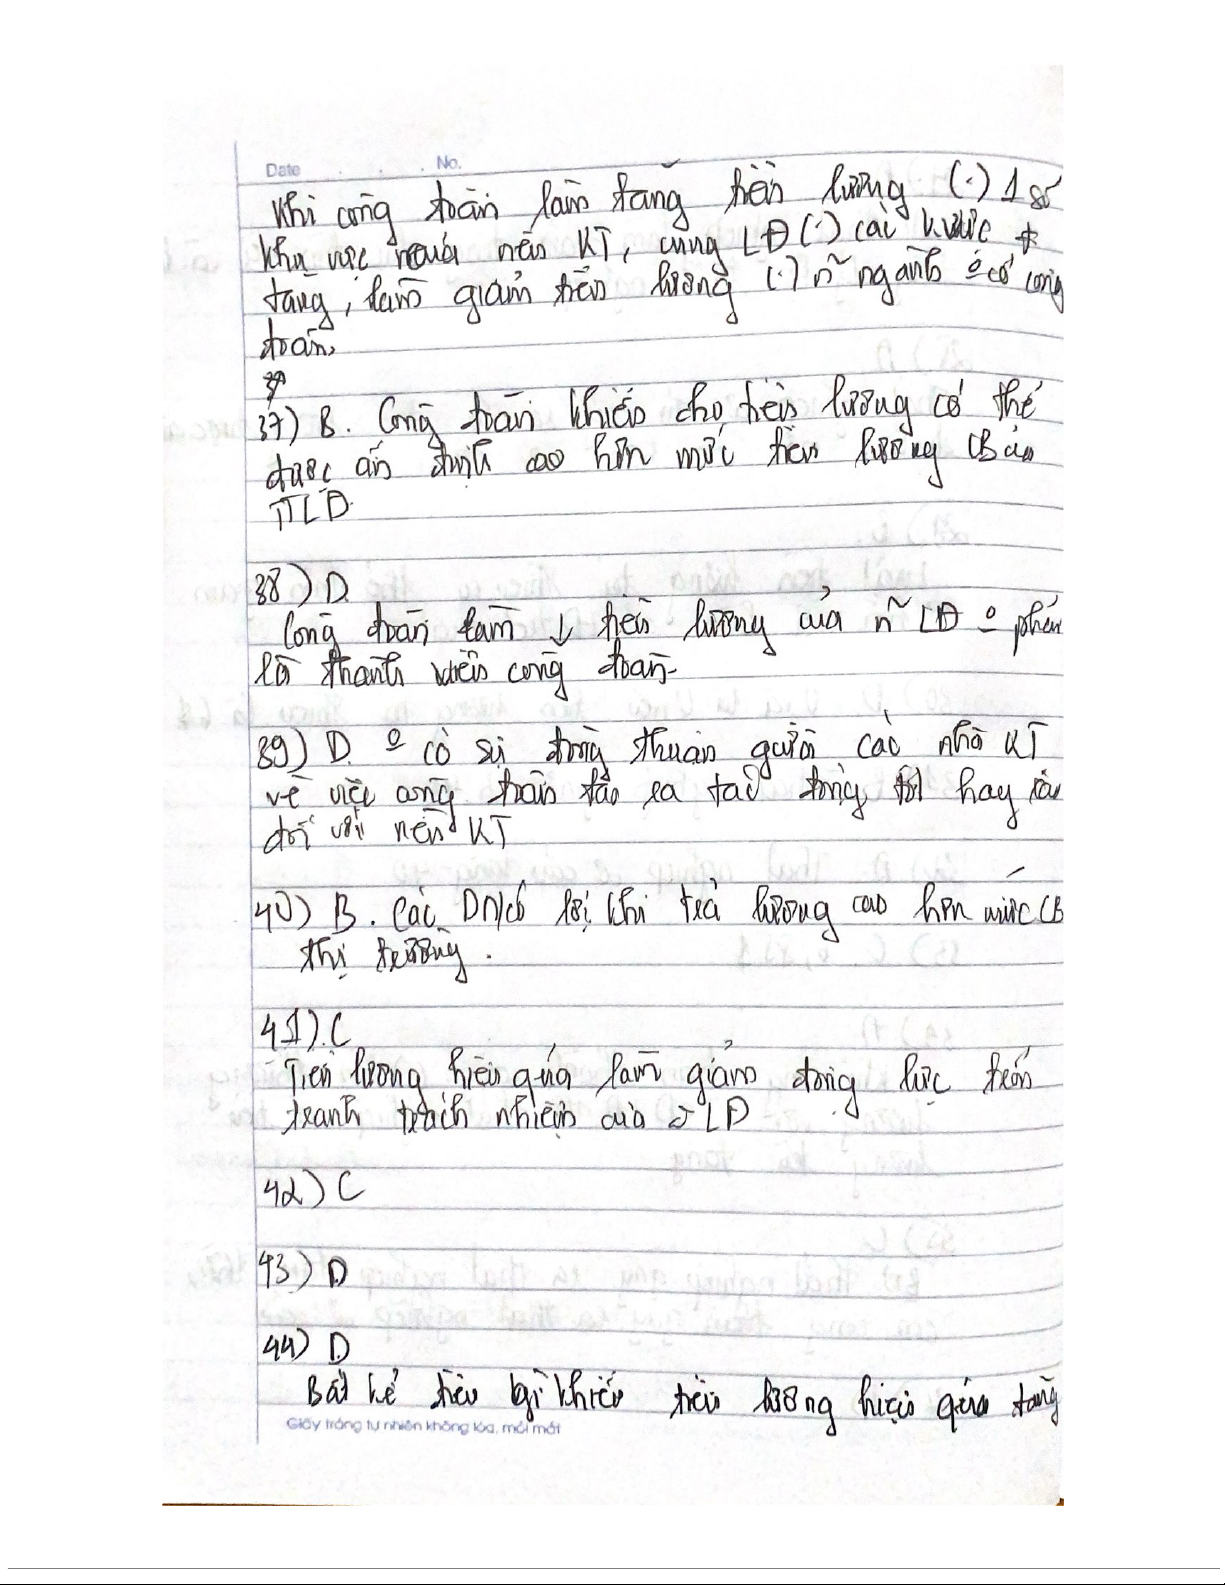 Date No.
Khi công đoàn làm tăng tiền lương (.) 1 số
khu vực của nền KT, cung LĐ (.) các k vực #
tăng, làm giảm tiền lương (.) n~ ngành o có công
đoàn.
37) B. Công đoàn khiến cho tiền lương có thể
được ấn định cao hơn mức tiền lương CB của
TTLĐ.
38) D.
Công đoàn làm ↓ tiền lương của n~ LĐ o phải
là thành viên công đoàn.
39) D. o có sự đồng thuận giữa các nhà KT
về việc công đoàn tạo ra tác động tốt hay xấu
đối với nền KT
40) B. Các DN có lợi khi trả lương cao hơn mức CB
thị trường.
41). C
Tiền lương hiệu quả làm giảm động lực trốn
tránh trách nhiệm của LĐ
42) C
43) D.
44) D.
Bất kể điều gì khiến tiền lương hiệu quả tăng
Giấy trắng tự nhiên không lóa, mỏi mắt